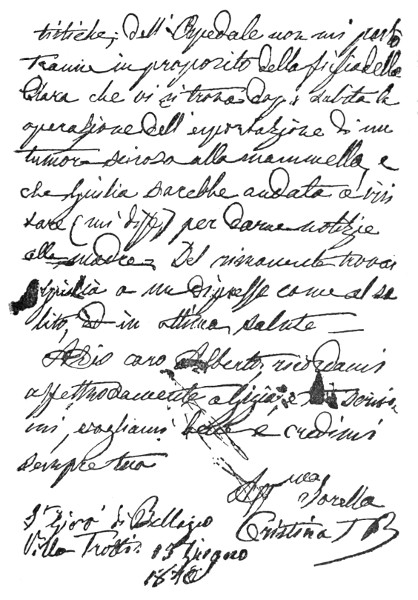 tistiche; dell'Ospedale non mi parlò
tranne in proposito della figlia della
Clara che vi si trova dopo subita la
operazione dell'esportazione di un
tumore alla mammella, e
che Giulia sarebbe andata a visi
tare (mi disse) per darne notizie
alla madre. Del rimanente trovai
Giulia a un dipresso come al so
lito, ed in ottima salute —
Addio caro Alberto, ricordami
affettuosamente a scrivi
mi, vogliami bene e credimi
sempre tua
Aff.ma Sorella
Cristina T B
S.n Giov.i di Bellagio
Villa Trotti 13 Giugno